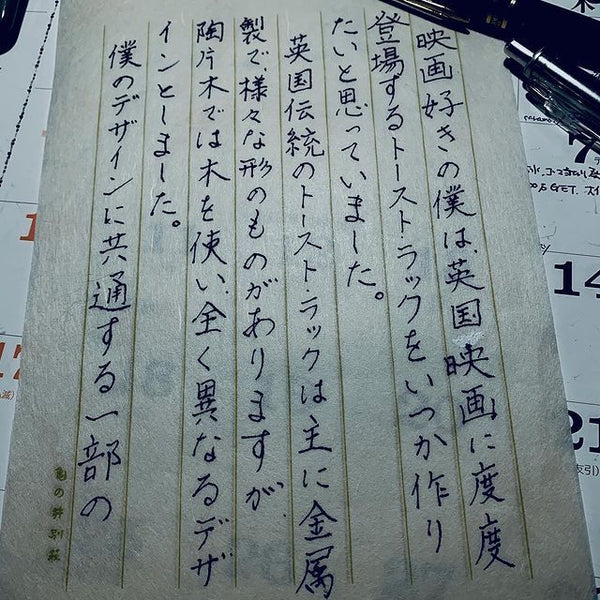 映画好きの僕は、英国映画に度度
登場するトースト・ラックをいつか作り
たいと思っていました。
英国伝統のトースト・ラックは主に金属
製で、様々な形のものがありますが、
陶片木では木を使い、全く異なるデザ
インとしました。
僕のデザインに共通する一部の
亀の井別荘
7
14
21